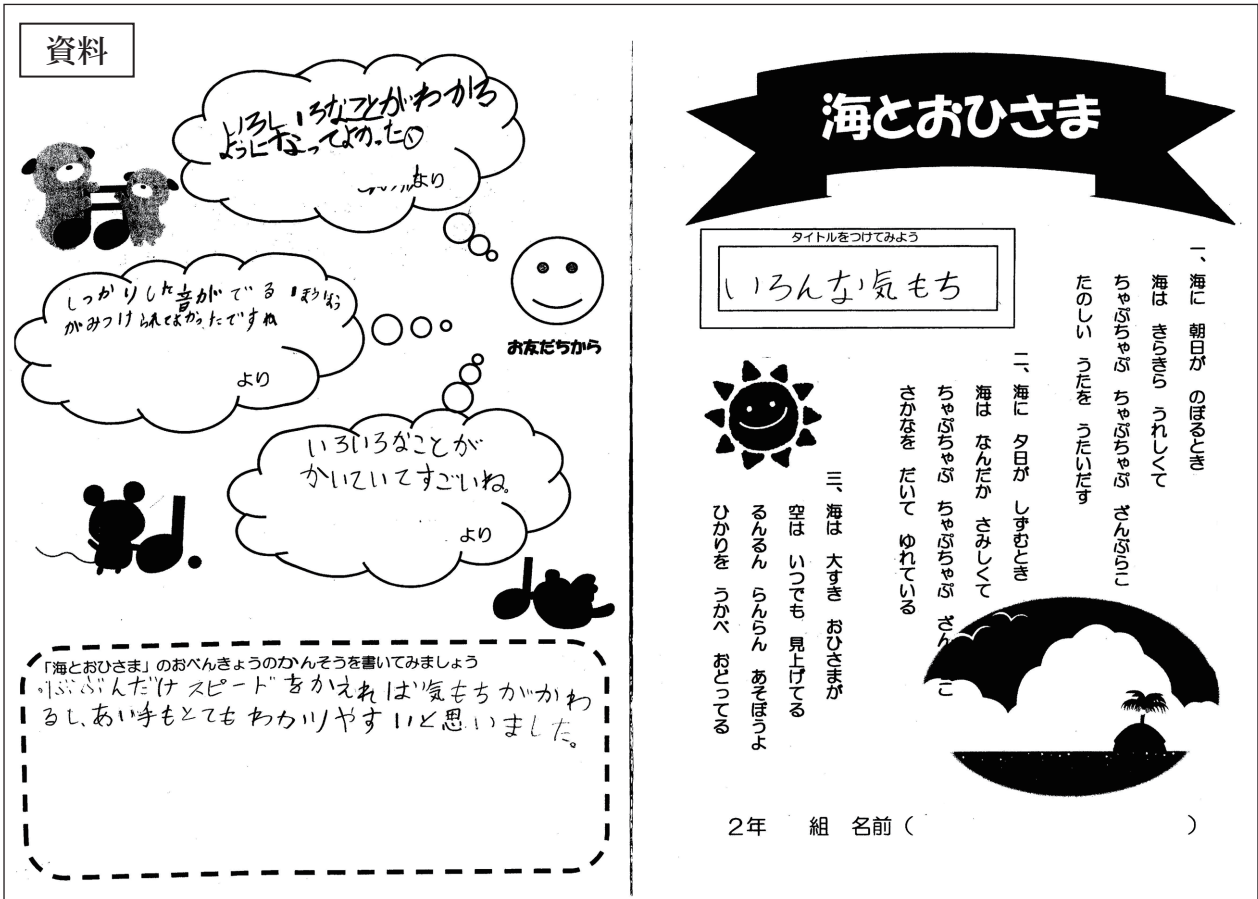 資料
いろいろなことがわかる
ようになってよかった
より
しっかりした音がでるほうほう
がみつけられてよかったですね
より
お友だちから
いろいろなことが
かいていてすごいね。
より
「海とおひさま」のおべんきょうのかんそうを書いてみましょう
ぶぶんだけスピードをかえれば気もちがかわ
るし、あい手もとてもわかりやすいと思いました。
海とおひさま
タイトルをつけてみよう
いろんな気もち
一、海に 朝日が のぼるとき
海は きらきら うれしくて
ちゃぷちゃぷ ちゃぷちゃぷ ざんぶらこ
たのしい うたを うたいだす
二、海に 夕日が しずむとき
海は なんだか さみしくて
ちゃぷちゃぷ ちゃぷちゃぷ ざん こ
さかなを だいて ゆれている
三、海は 大すき おひさまが
空は いつでも 見上げてる
るんるん らんらん あそぼうよ
ひかりを うかべ おどってる
2年 組 名前( )